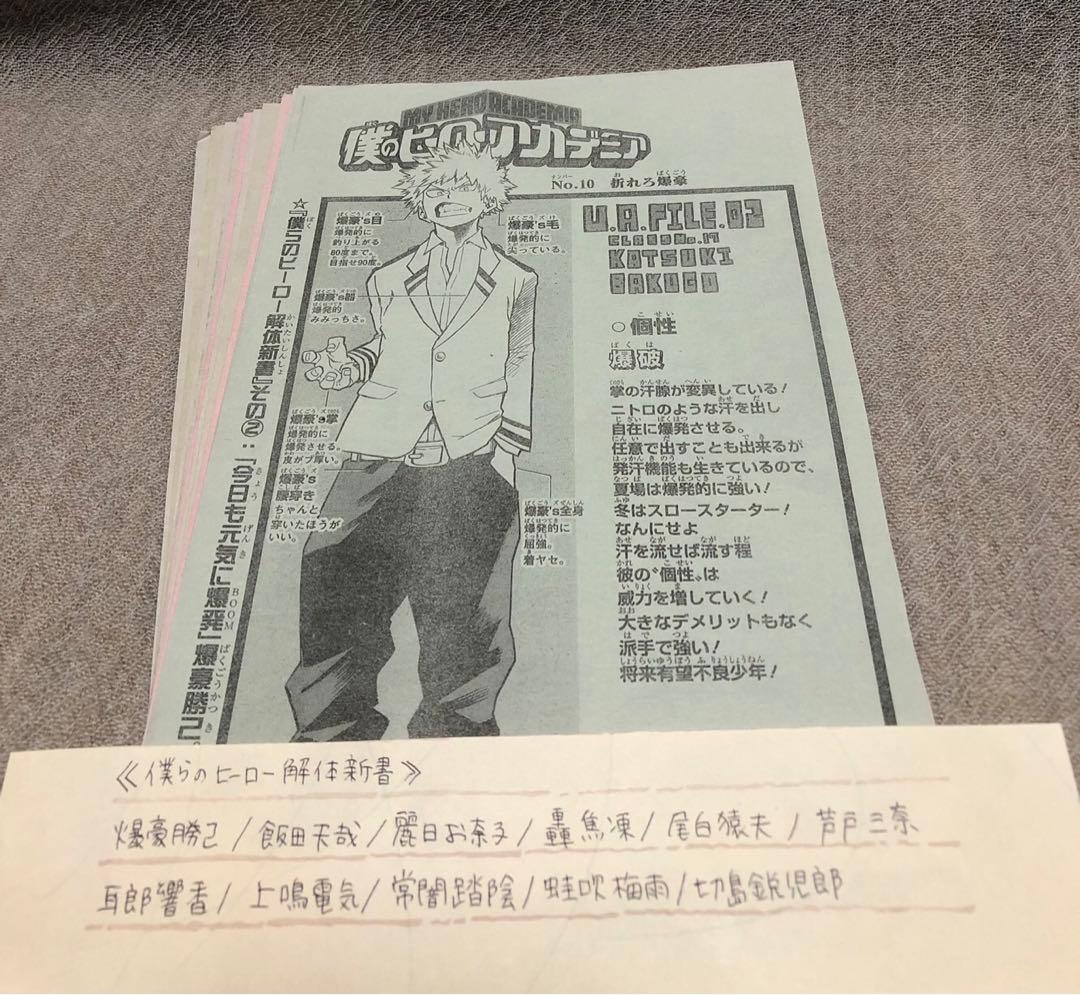 MY HERO ACADEMIA
僕のヒーローアカデミア
No.10 折れろ爆豪
U.A.FILE.02
CLASS No.17
KATSUKI
BAKUGO
○個性
爆破
掌の汗腺が変異している！
ニトロのような汗を出し
自在に爆発させる。
任意で出すことも出来るが
発汗機能も生きているので、
夏場は爆発的に強い！
冬はスロースターター！
なんにせよ
汗を流せば流す程
彼の〝個性〟は
威力を増していく！
大きなデメリットもなく
派手で強い！
将来有望不良少年！
爆豪's毛
爆発的に
尖っている。
爆豪's目
爆発的に
釣り上がる
80度まで。
目指せ90度。
爆豪's器
爆発的
みみっちさ。
爆豪's掌
爆発的に
爆発させる。
皮がブ厚い。
爆豪's
腰穿き
ちゃんと
穿いたほうが
いい。
爆豪's全身
爆発的に
屈強。
着ヤセ。
☆『僕らのヒーロー解体新書』その②：「今日も元気に爆発」爆豪勝己。
≪僕らのヒーロー解体新書≫
爆豪勝己/飯田天哉/麗日お奈子/轟焦凍/尾白猿夫/芦戸三奈
耳郎響香/上鳴電気/常闇踏陰/蛙吹梅雨/切島鋭児郎